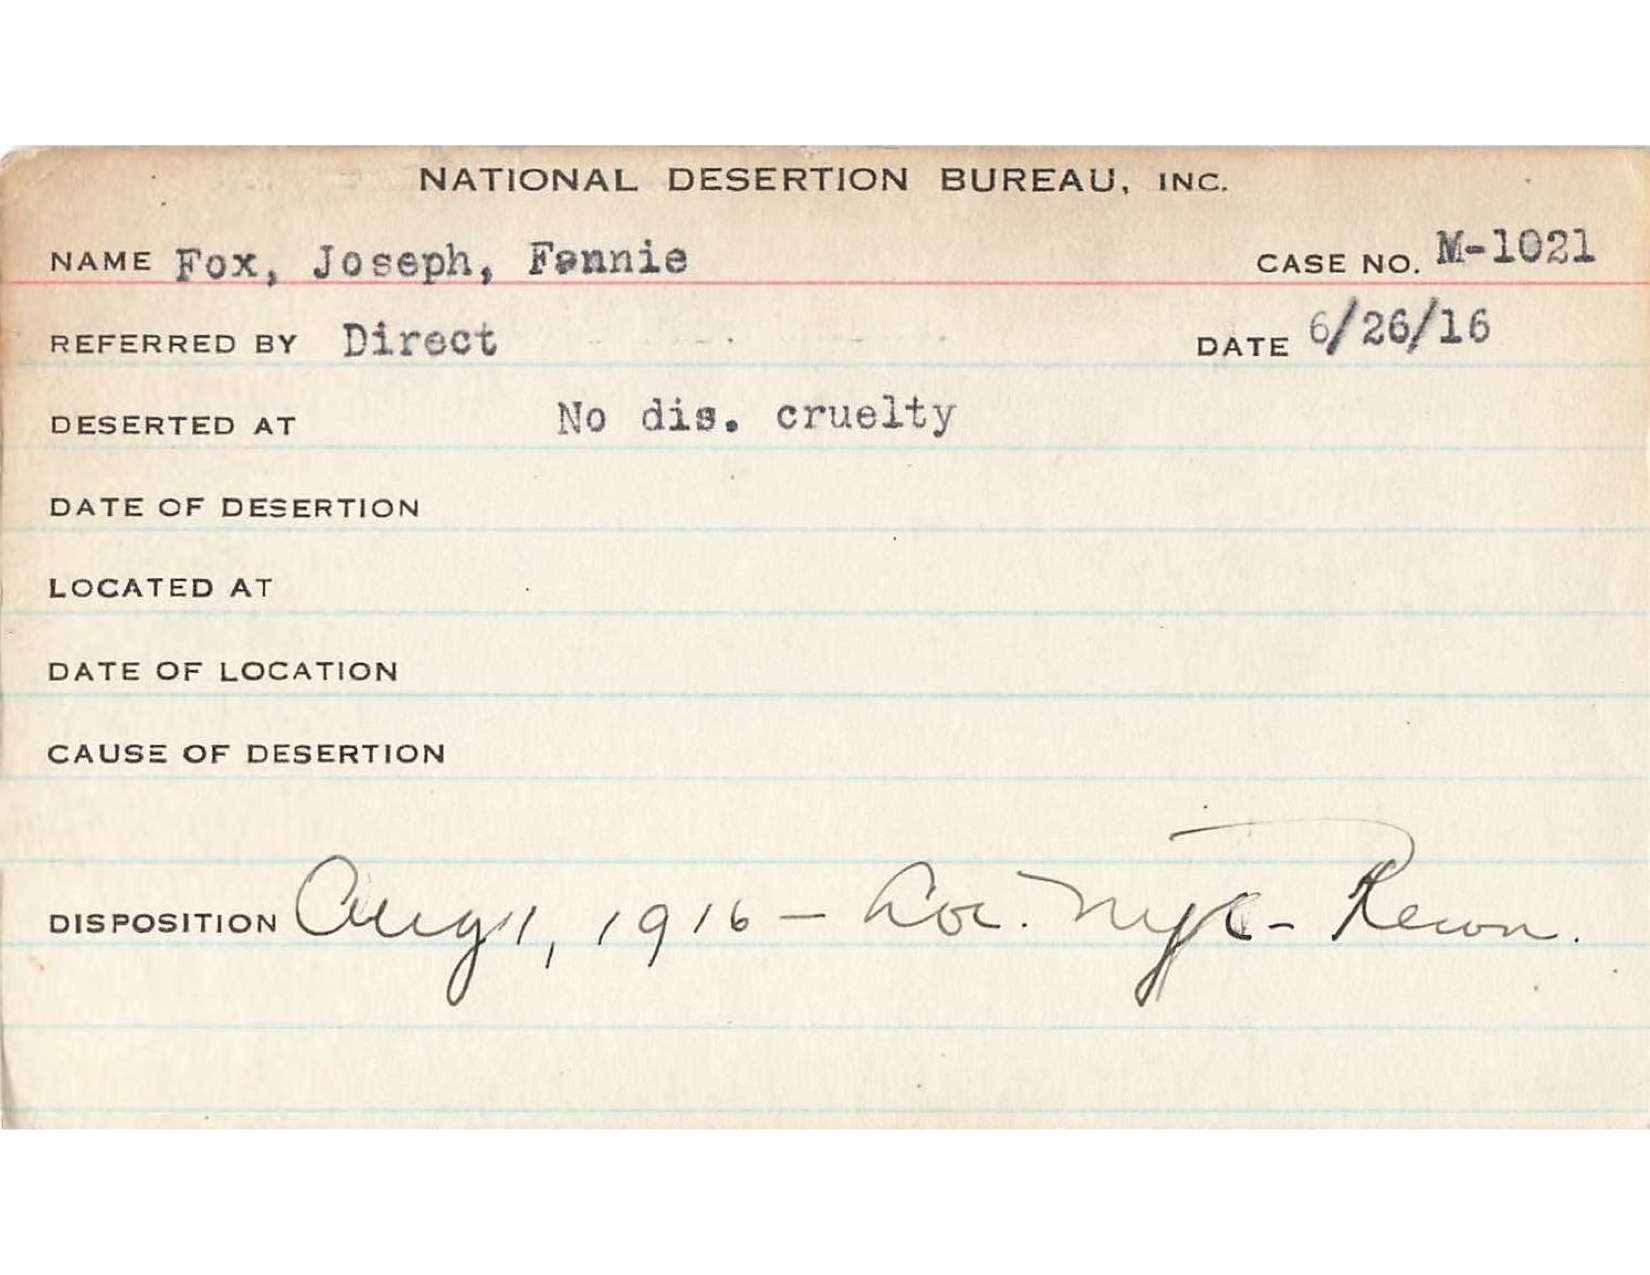 NATIONAL DESERTION BUREAU, INC.
NAME Fox, Joseph, Fannie CASE NO. M-1021
REFERRED BY Direct DATE 6/26/16
DESERTED AT No dis. cruelty
DATE OF DESERTION
LOCATED AT
DATE OF LOCATION
CAUSE OF DESERTION
DISPOSITION Aug 1, 1916 - Loc. NYC - Recon.